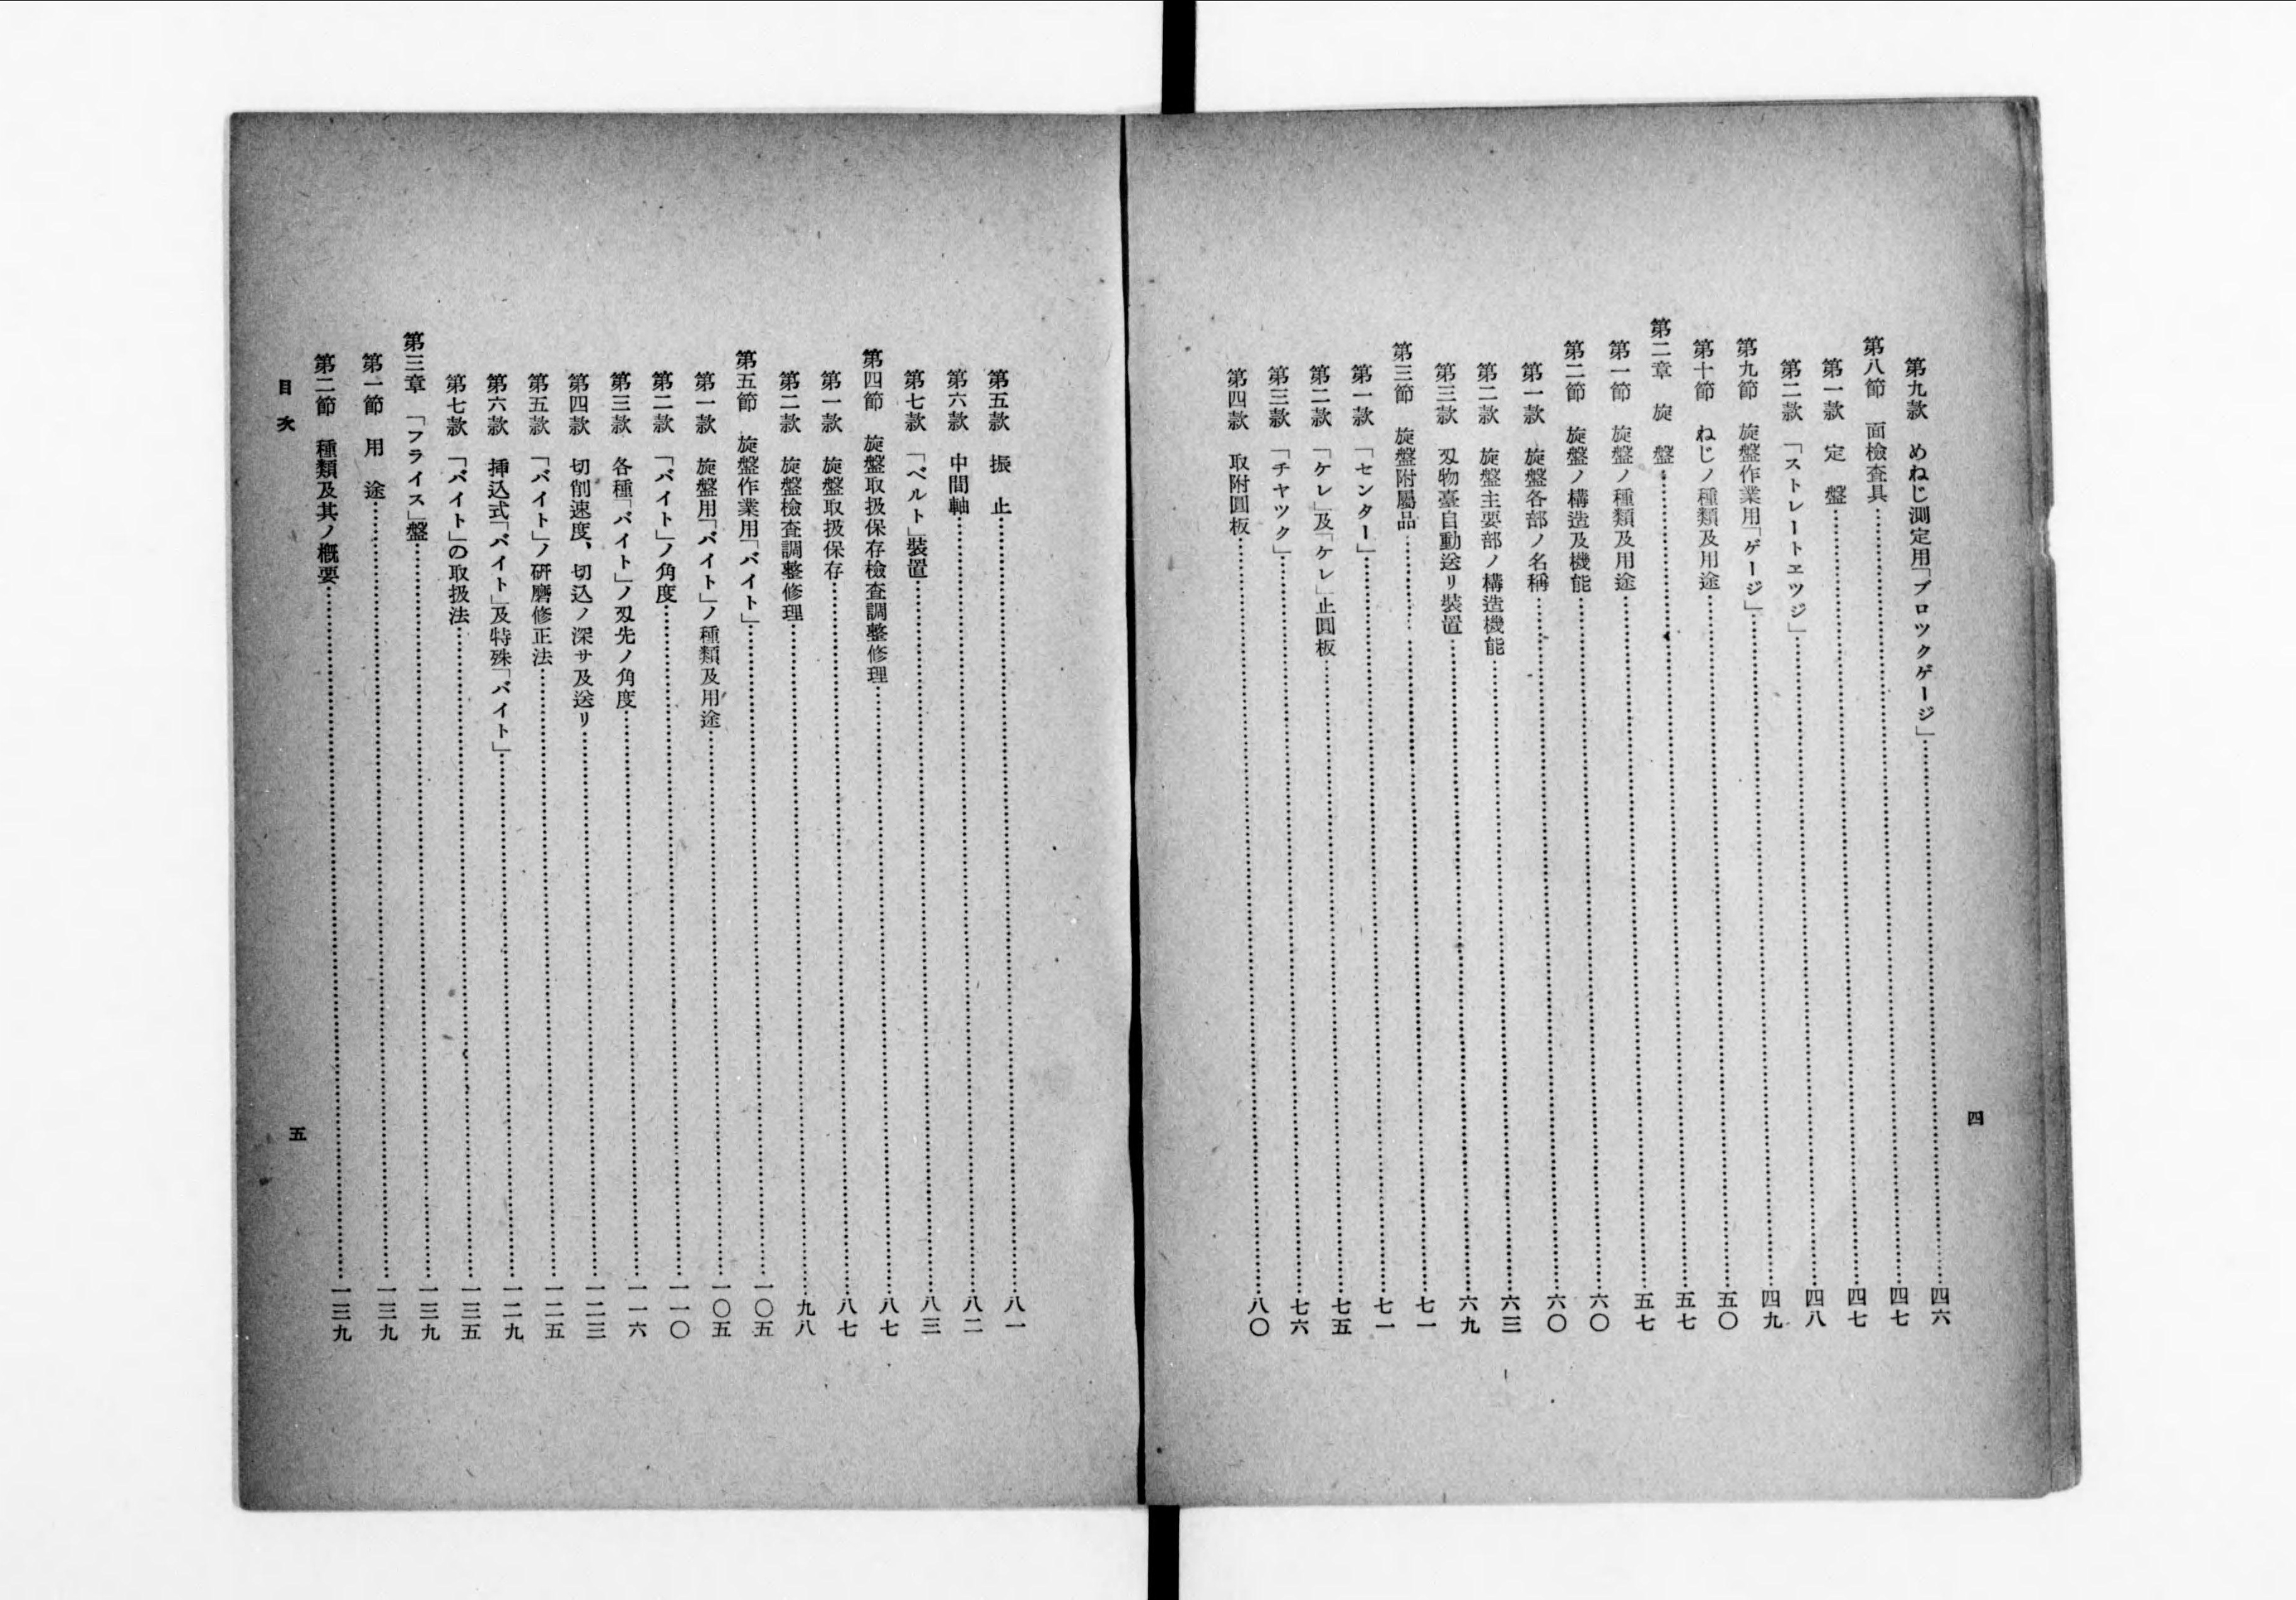 四
第九款　めねじ測定用「ブロツクゲージ」……四六
第八節　面檢査具……四七
第一款　定　盤……四七
第二款　「ストレートエツジ」……四八
第九節　旋盤作業用「ゲージ」……四九
第十節　ねじノ種類及用途……五〇
第二章　旋　盤……五七
第一節　旋盤ノ種類及用途……五七
第二節　旋盤ノ構造及機能……六〇
第一款　旋盤各部ノ名稱……六〇
第二款　旋盤主要部ノ構造機能……六三
第三款　刄物臺自動送リ裝置……六九
第三節　旋盤附屬品……七一
第一款　「センター」……七一
第二款　「ケレ」及「ケレ」止圓板……七五
第三款　「チヤツク」……七六
第四款　取附圓板……八〇
第五款　振　止……八一
第六款　中間軸……八二
第七款　「ベルト」裝置……八三
第四節　旋盤取扱保存檢査調整修理……八七
第一款　旋盤取扱保存……八七
第二款　旋盤檢査調整修理……九八
第五節　旋盤作業用「バイト」……一〇五
第一款　旋盤用「バイト」ノ種類及用途……一〇五
第二款　「バイト」ノ角度……一一〇
第三款　各種「バイト」ノ刄先ノ角度……一一六
第四款　切削速度、切込ノ深サ及送リ……一二三
第五款　「バイト」ノ研磨修正法……一二五
第六款　挿込式「バイト」及特殊「バイト」……一二九
第七款　「バイト」の取扱法……一三五
第三章　「フライス」盤……一三九
第一節　用　途……一三九
第二節　種類及其ノ概要……一三九
目　次
五